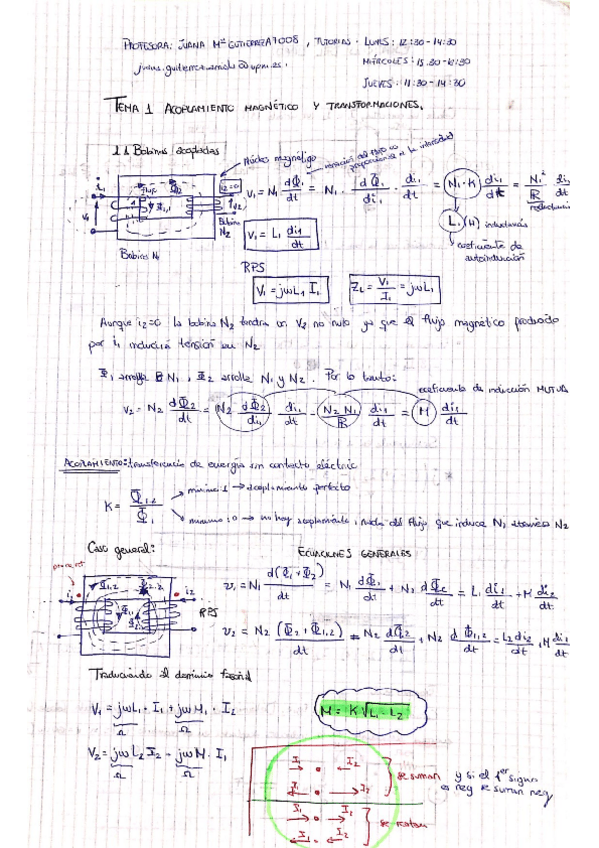 PROFESORA: JUANA Mª GUTIERREZ A7008, TUTORIAS - LUNES: 12:30-14:30
MIERCOLES: 15:30-
@upm.es.
JUEVES: 11:30-14:30
TEMA 1 ACOPLAMIENTO MAGNÉTICO Y TRANSFORMACIONES.
1.1 Bobinas acopladas
Núcleo magnético
variación del flujo es proporcional a la intensidad
i₁ Φ₁,₁ i₂=0 V₁ V₂
V₁ = N₁ dΦ₁/dt = N₁ · dΦ₁/di₁ · di₁/dt = N₁·K di₁/dt = N₁²/R di₁/dt
L₁ (H) inductancia
coeficiente de autoinducción
V₁ = L₁ di₁/dt
Bobina N₁
Bobina N₂
RPS
V₁ = jωL₁ I₁
Z_L = V₁/I₁ = jωL₁
Aunque i₂=0 la bobina N₂ tendrá un V₂ no nulo ya que el flujo magnético producido
por i₁ inducirá tensión en N₂
Φ₁ N₁, Φ₂ N₁ y N₂. Por lo tanto:
coeficiente de inducción MUTUA
V₂ = N₂ dΦ₂/dt = N₂ dΦ₂/di₁ di₁/dt = N₂N₁/R di₁/dt = M di₁/dt
ACOPLAMIENTO: transferencia de energía sin contacto eléctric
K = Φ₁,₂/Φ₁
1 → acoplamiento perfecto
0 → no hay acoplamiento, nada del flujo que induce N₁ N₂
Caso general:
ECUACIONES GENERALES
i₁ Φ₁,₂ i₂
RPS
v₁ = N₁ d(Φ₁+Φ₂)/dt = N₁ dΦ₁/dt + N₁ dΦ₂/dt = L₁ di₁/dt + M di₂/dt
v₂ = N₂ (Φ₂+Φ₁,₂)/dt = N₂ dΦ₂/dt + N₂ dΦ₁,₂/dt = L₂ di₂/dt, M di₁/dt
Traduciendo al dominio fasorial
V₁ = jωL₁ · I₁ + jωM₁ · I₂
Ω Ω
M = K√L₁·L₂
V₂ = jωL₂ I₂ - jωM · I₁
Ω Ω
I₁ → • ← I₂
I₁ ← • → I₂
se suman
y si el 1er signo
es neg se suman neg
I₁ → • → I₂
I₁ ← • ← I₂
se restan